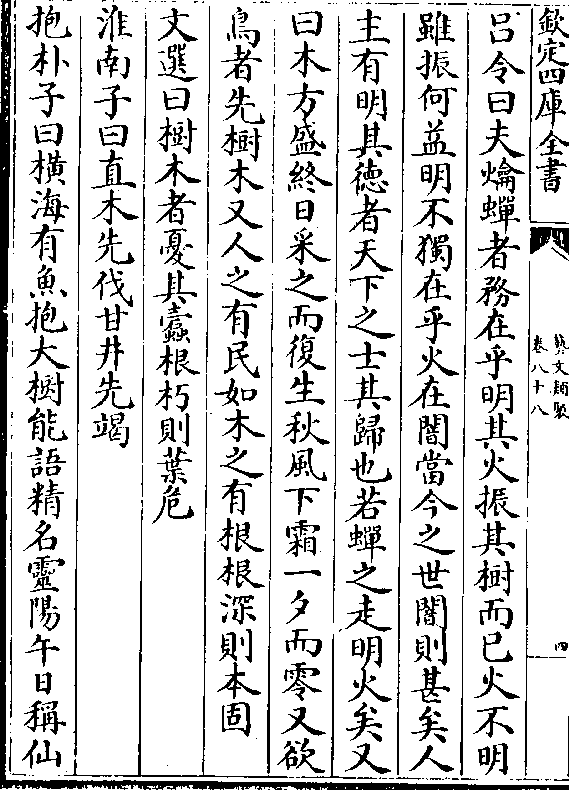 欽定四庫全書
藝文類聚
卷八十八
四
呂令曰夫爚蟬者務在乎明其火振其樹而已火不明
雖振何益明不獨在乎火在闇當今之世闇則甚矣人
主有明其德者天下之士其歸也若蟬之走明火矣又
曰木方盛終日采之而復生秋風下霜一夕而零又欲
鳥者先樹木又人之有民如木之有根根深則本固
文選曰樹木者憂其蠹根朽則葉危
淮南子曰直木先伐甘井先竭
抱朴子曰橫海有魚抱大樹能語精名靈陽午日稱仙